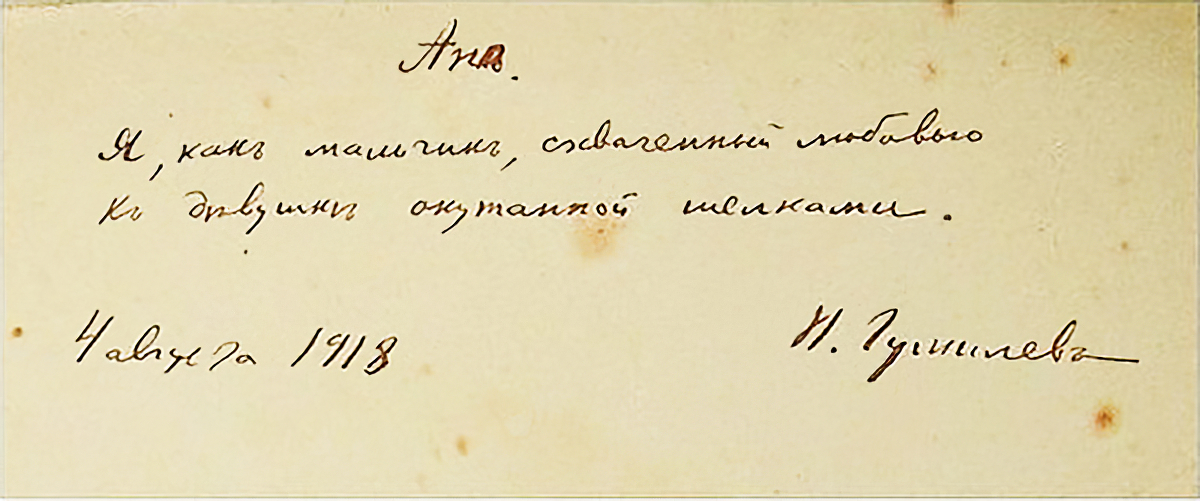 Анѣ.
Я, какъ мальчикъ, охваченный любовью
къ дѣвушкѣ окутанной шелками.
4 августа 1918 Н. Гумилевъ